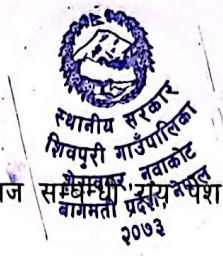 स्थानीय सरकार
शिवपुरी गाउँपालिका
नुवाकोट
बागमती प्रदेश, नेपाल
२०७३
ज सम्बन्धी राय पेश